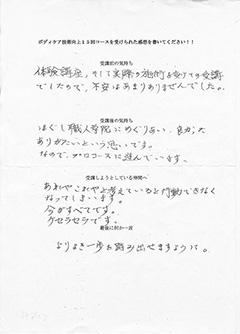 ボディケア技術向上15回コースを受けられた感想を書いてください！！
受講前の気持ち
体験講座、そして実際の施術を受けての受講
でしたので、不安はあまりありませんでした。
受講後の気持ち
ほぐし職人学院にめぐりあい、良かった
ありがたいという思いです。
なので、プロコースに進んでいます。
受講しようとしている仲間へ
あれやこれやと考えていると行動できなく
なってしまいます。
今がすべてです。
ケセラセラです。
最後に何か一言
よりよき一歩を踏み出せますように。